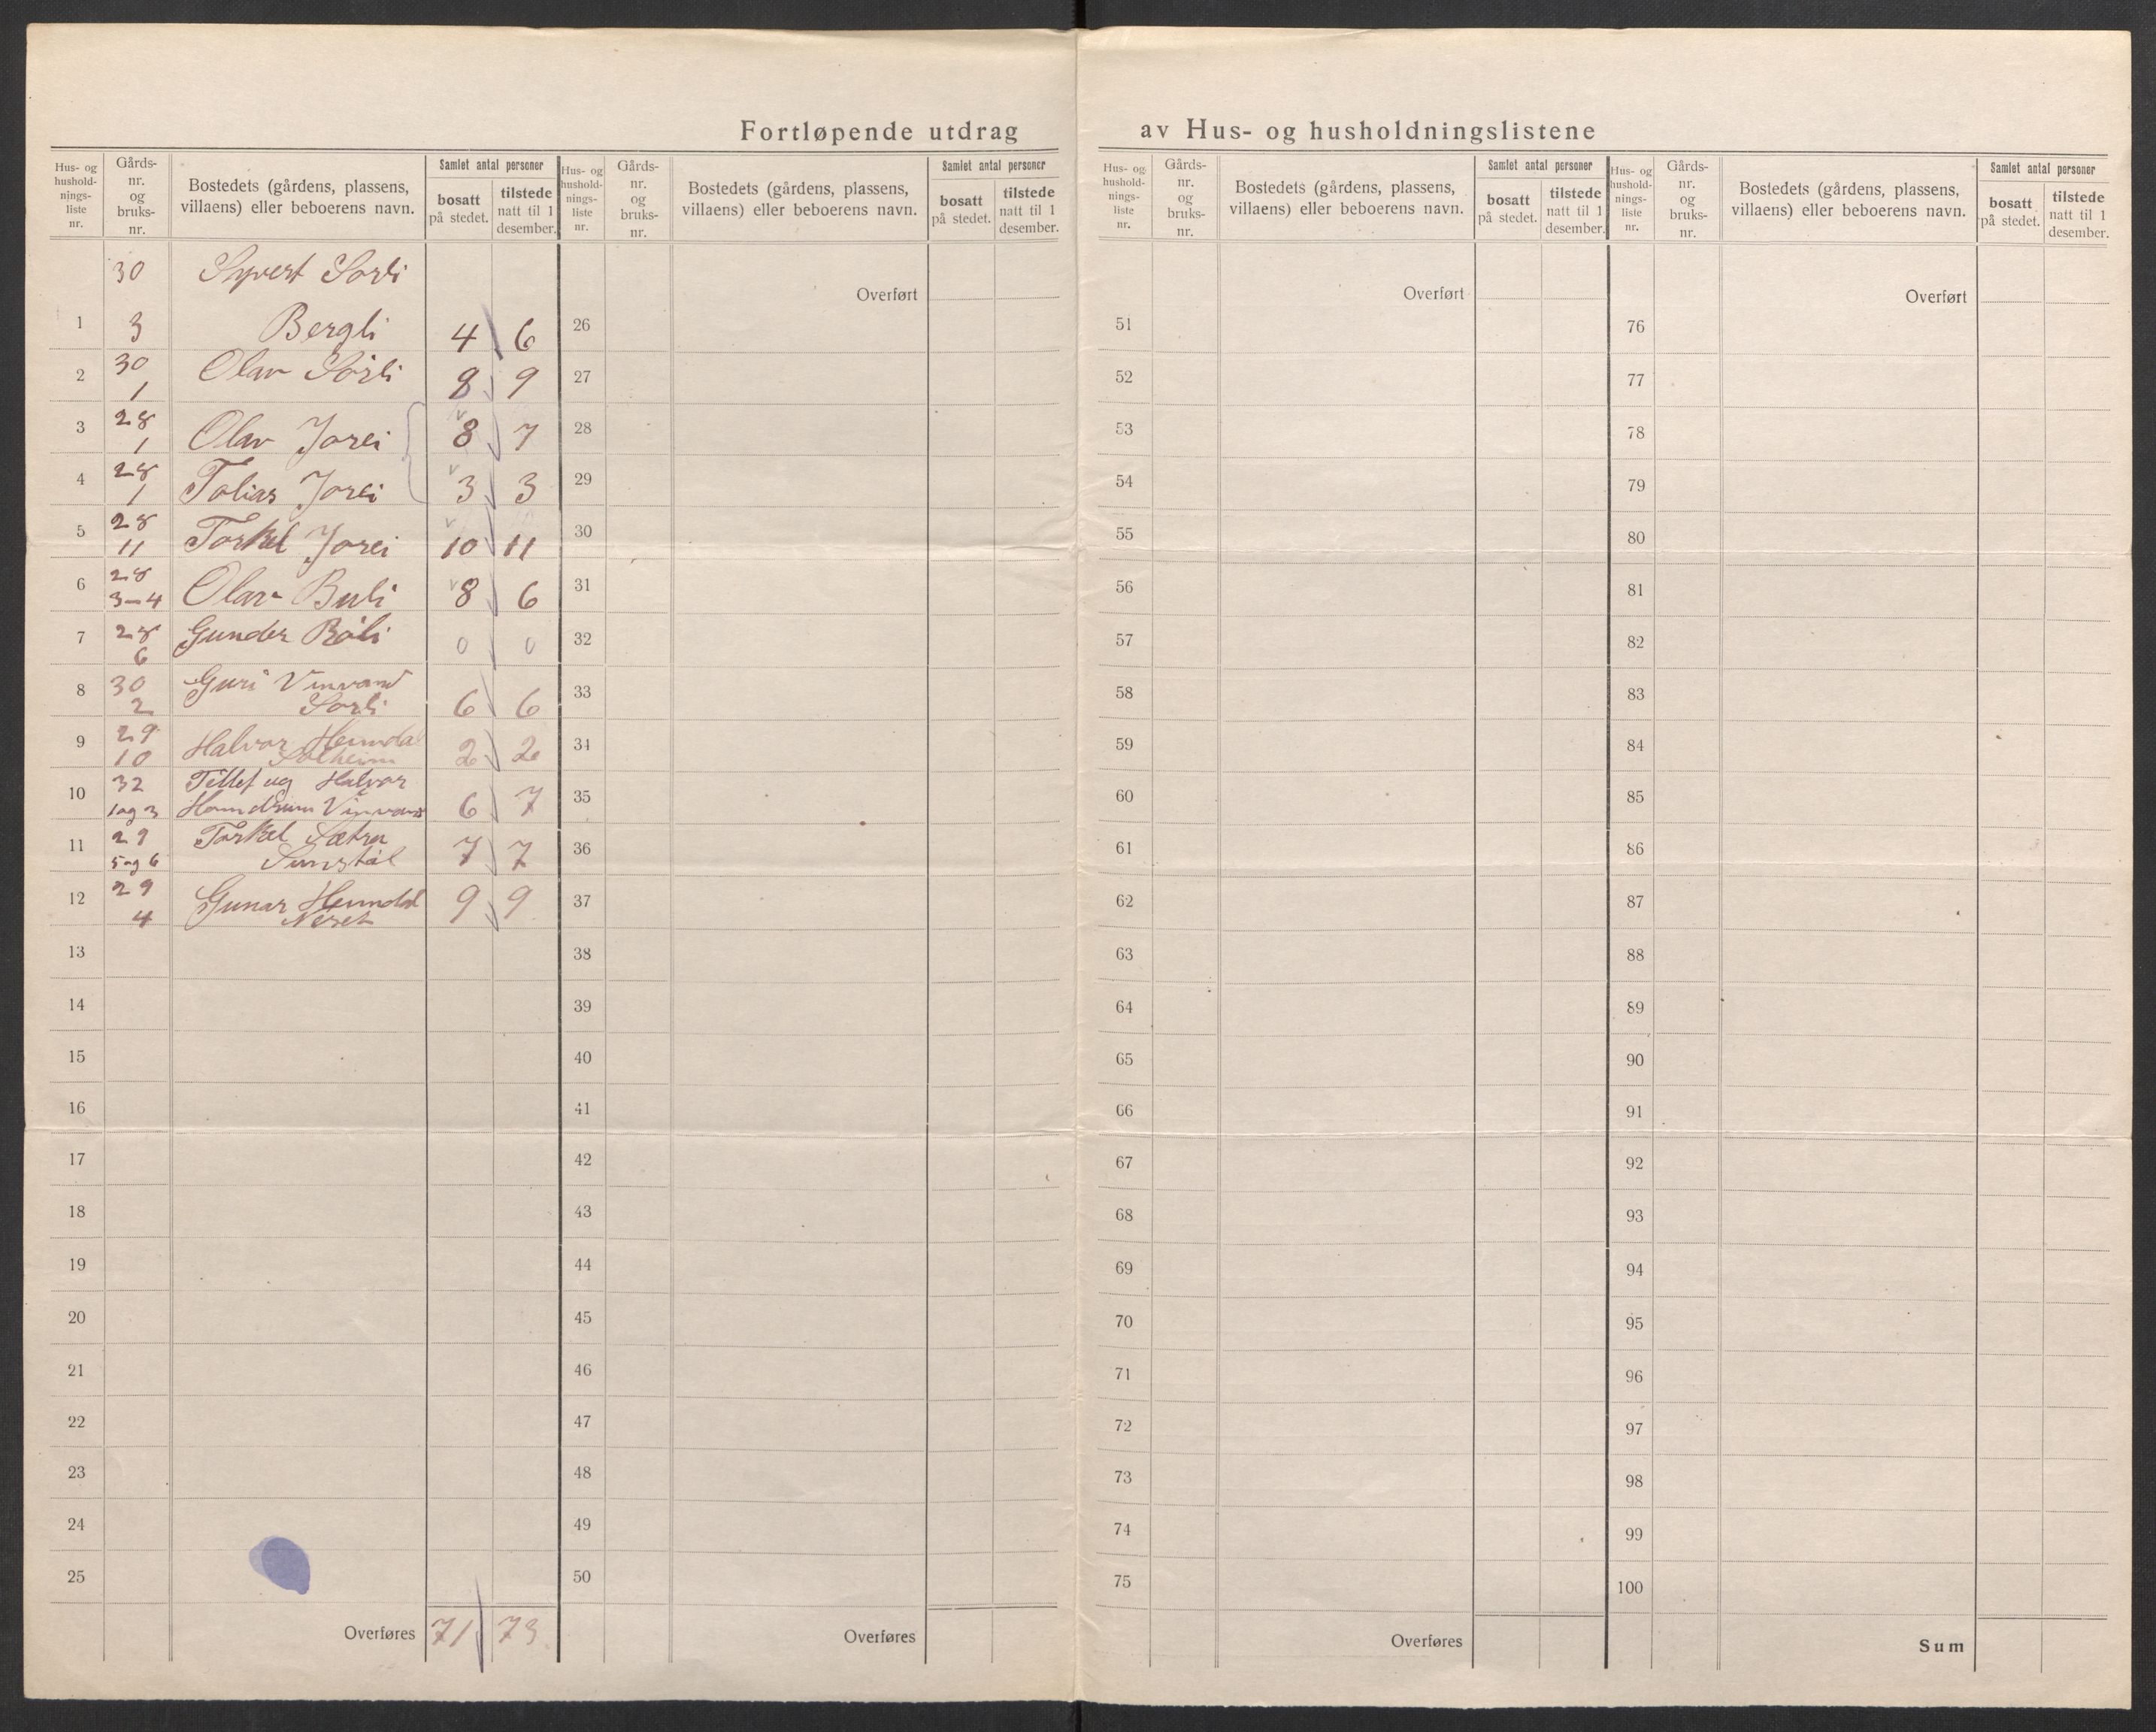 Fortløpende utdrag av Hus- og husholdningslistene
Hus- og hushold- nings- liste nr.
Gårds- nr. og bruks- nr.
Bostedets (gårdens, plassens, villaens) eller beboerens navn.
Samlet antal personer
bosatt på stedet.
tilstede natt til 1 desember.
Hus- og hushold- nings- liste nr.
Gårds- nr. og bruks- nr.
Bostedets (gårdens, plassens, villaens) eller beboerens navn.
Samlet antal personer
bosatt på stedet.
tilstede natt til 1 desember.
Hus- og hushold- nings- liste nr.
Gårds- nr. og bruks- nr.
Bostedets (gårdens, plassens, villaens) eller beboerens navn.
Samlet antal personer
bosatt på stedet.
tilstede natt til 1 desember.
Hus- og hushold- nings- liste nr.
Gårds- nr. og bruks- nr.
Bostedets (gårdens, plassens, villaens) eller beboerens navn.
Samlet antal personer
bosatt på stedet.
tilstede natt til 1 desember.
30 Syvert Sorli
1 3 Bergli 4 6
2 30 1 Olav Sörli 8 9
3 28 1 Olav Jorei 8 7
4 28 1 Tobias Jorei 3 3
5 28 11 Torkel Jorei 10 11
6 28 3-4 Olav Buli 8 6
7 28 6 Gunder Röli 0 0
8 30 Guri Vinvand
2 Sorli 6 6
9 29 Halvor Heimdal
10 Solheim 2 2
10 32 Tellef og Halvor
1 og 3 Vinvand 6 7
11 29 Torkel Sætra
5 og 6 7 7
12 29 Gunar Heimdal
4 Neset 9 9
13
14
15
16
17
18
19
20
21
22
23
24
25
Overføres 71 73
Overført
26
27
28
29
30
31
32
33
34
35
36
37
38
39
40
41
42
43
44
45
46
47
48
49
50
Overføres
Overført
51
52
53
54
55
56
57
58
59
60
61
62
63
64
65
66
67
68
69
70
71
72
73
74
75
Overføres
Overført
76
77
78
79
80
81
82
83
84
85
86
87
88
89
90
91
92
93
94
95
96
97
98
99
100
Sum